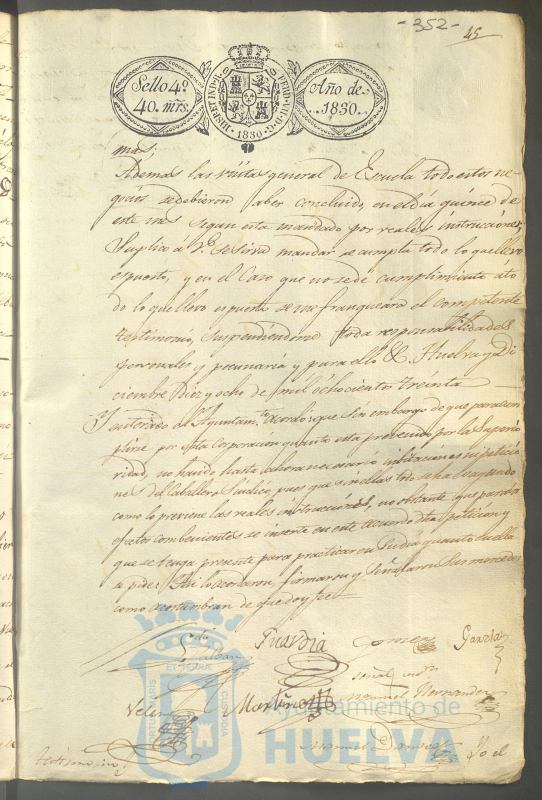 -352-
45
Sello 4º
40. mrs.
HISP. ET IND. R. FERD. VII. D. G. 1830.
Año de
1830.
mas.
Ademas las visitas general de Escuela todo estos ne-
gocios se debieron aber concluido, en el dia quince de
este mes segun esta mandado por reales instrucciones,
Suplica a V. se sirva mandar se cumpla todo lo que llevo
espuesto, y en el Caso que no se de cumplimiento a to-
do lo que llevo espuesto se me franqueara el competente
testimonio, suspendiendome toda responsabilidades
personales y pecuniaria y para ello &. Huelva y Di-
ciembre Diez y ocho de mil ochociento treinta
Y enterado el Ayuntam.to acordó: que sin embargo de que para cum-
plirse por esta Corporacion quanto esta prevenido por la Superio-
ridad, no hando hasta ahora necesario ni peticio-
nes del Caballero Sindico pues que sin ellas todo se ha
como lo previene las reales instrucciones, no obstante que para los
efectos combenientes se inserte en este acuerdo dha peticion y
que se tenga presente para practicar en su dia quanto en ella
se pide. Asi lo acordaron, firmaron y señalaron Sus mercedes
como acostumbran de que doy fee
Guardia
Gomez
Garzia
Martinez
Señal
Manuel Hernandez
Manuel
Yo el
PORTUS MARIS ET TERRÆ CUSTODIA
Ayuntamiento de
HUELVA